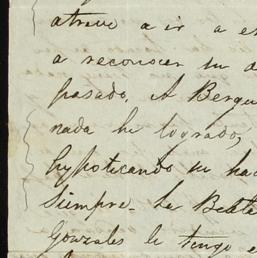 atreve a ir a es
a reconocer su d
pasado. A Bergu
nada he logrado,
hypoticando su hac
siempre - La Beata
Gonzales le tengo e